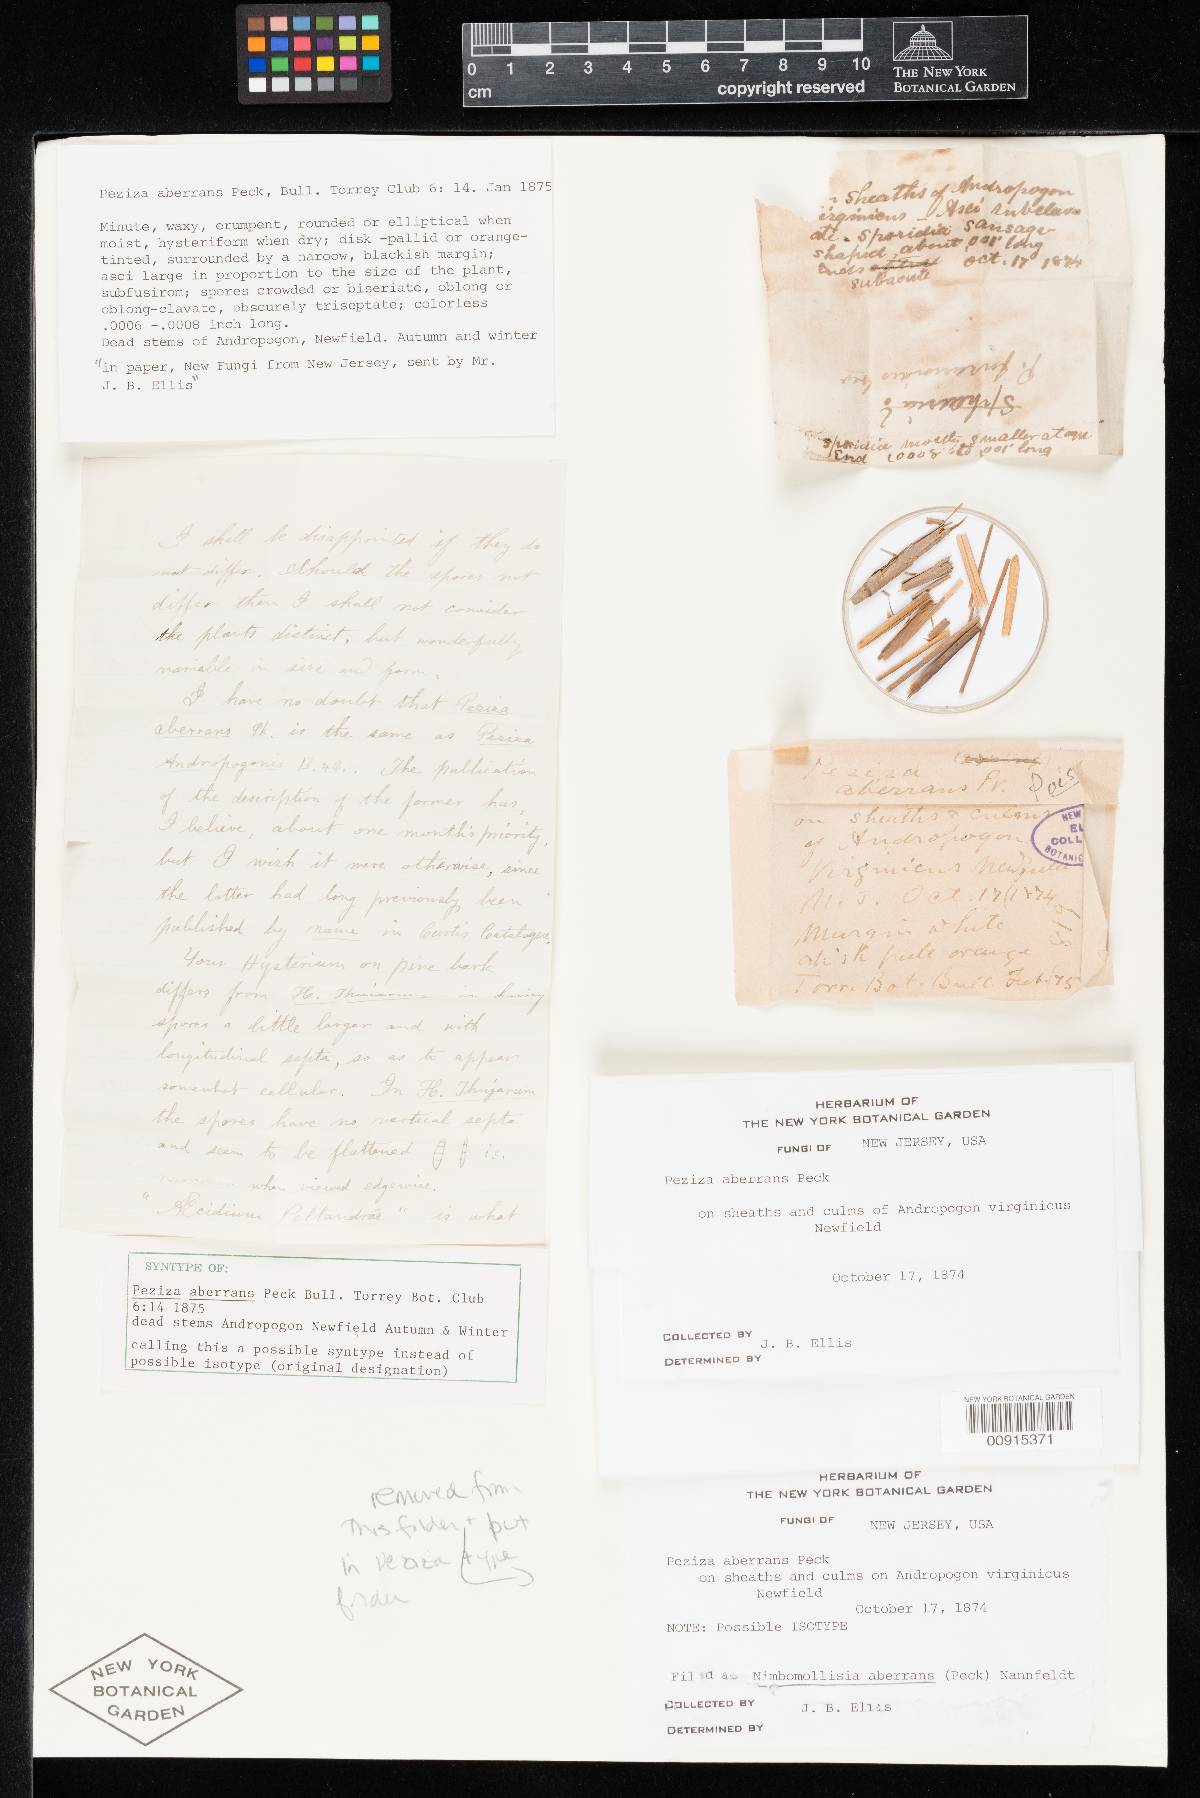 0 1 2 3 4 5 6 7 8 9 10
cm
copyright reserved
THE NEW YORK
BOTANICAL GARDEN
Peziza aberrans Peck, Bull. Torrey Club 6: 14. Jan 1875
Minute, waxy, erumpent, rounded or elliptical when
moist, hysteriform when dry; disk -pallid or orange-
tinted, surrounded by a naroow, blackish margin;
asci large in proportion to the size of the plant,
subfusirom; spores crowded or biseriate, oblong or
oblong-clavate, obscurely triseptate; colorless
.0006 -.0008 inch long.
Dead stems of Andropogon, Newfield. Autumn and winter
"in paper, New Fungi from New Jersey, sent by Mr.
J. B. Ellis"
n sheaths of Andropogon
irginicus - Asci subclav
ate. Sporidia sausage
shaped, about .001' long
Ends subacute Oct. 17 1874
Sphaeria
Sporidia mostly smaller at one
End .0008 to .001' long
I shall be disappointed if they do
not differ. Should the spores not
differ then I shall not consider
the plants distinct, but wonderfully
variable in size and form.
I have no doubt that Peziza
aberrans Pk. is the same as Peziza
Andropogonis B. & C. The publication
of the description of the former has,
I believe, about one month's priority,
but I wish it were otherwise, since
the latter had long previously been
published by name in Curtis Catalogue.
Your Hysterium on pine bark
differs from H. Thujarum in having
spores a little larger and with
longitudinal septa, so as to appear
somewhat cellular. In H. Thujarum
the spores have no vertical septa
and seem to be flattened is.
narrower when viewed edgewise.
"Æcidium Peltandræ" is what
Peziza
aberrans Pk.
on sheaths & culms
of Andropogon
Virginicus Newfield
N. J. Oct. 17 1874
Margin white
disk pale orange
Torr. Bot. Bull. Feb. '75
NEW
EL
COLL
BOTANIC
SYNTYPE OF:
Peziza aberrans Peck Bull. Torrey Bot. Club
6:14 1875
dead stems Andropogon Newfield Autumn & Winter
calling this a possible syntype instead of
possible isotype (original designation)
HERBARIUM OF
THE NEW YORK BOTANICAL GARDEN
FUNGI OF NEW JERSEY, USA
Peziza aberrans Peck
on sheaths and culms of Andropogon virginicus
Newfield
October 17, 1874
COLLECTED BY J. B. Ellis
DETERMINED BY
NEW YORK BOTANICAL GARDEN
00915371
HERBARIUM OF
THE NEW YORK BOTANICAL GARDEN
FUNGI OF NEW JERSEY, USA
Peziza aberrans Peck
on sheaths and culms on Andropogon virginicus
Newfield
October 17, 1874
NOTE: Possible ISOTYPE
Filed as Nimbomollisia aberrans (Peck) Nannfeldt
COLLECTED BY J. B. Ellis
DETERMINED BY
removed from
this folder + put
in Peziza type
folder
NEW YORK
BOTANICAL
GARDEN